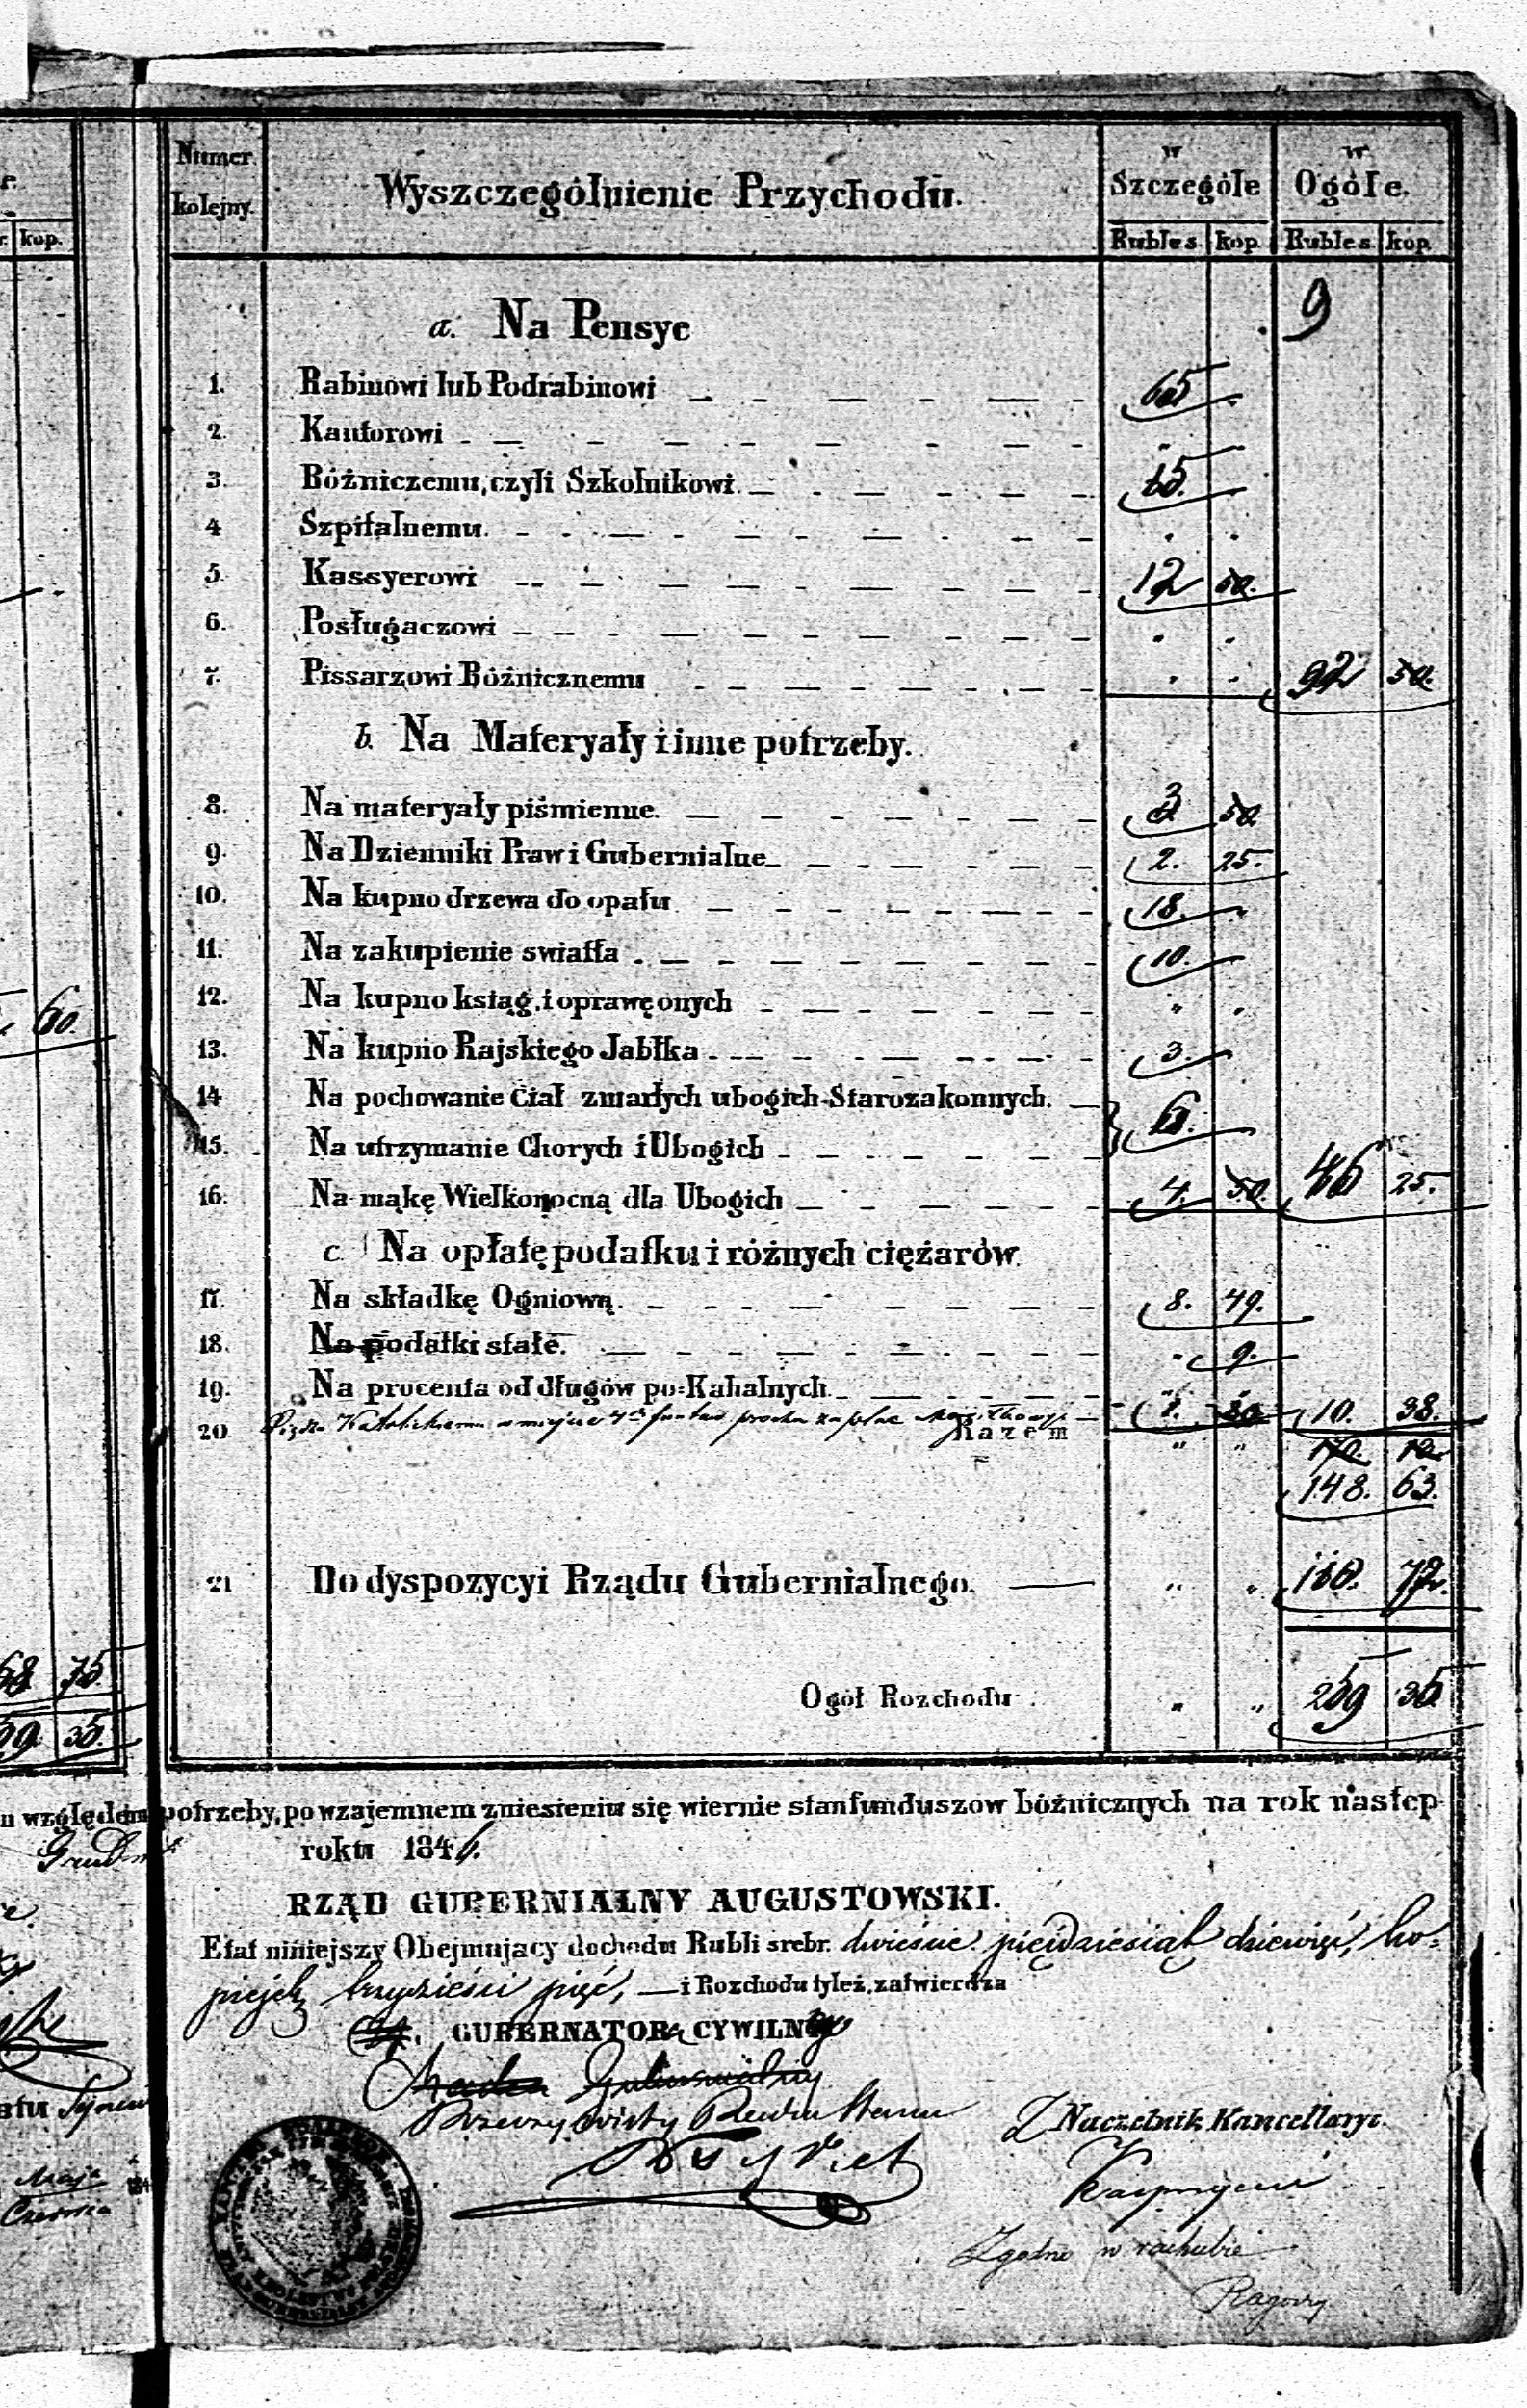 Numer kolejny.
Wyszczególnienie Przychodu.
w Szczególe
w Ogóle.
Rubles. kop. Rubles. kop.
kop.
9
a. Na Pensye
1. Rabinowi lub Podrabinowi 65
2. Kantorowi
3. Bóżniczemu, czyli Szkolnikowi 15.
4 Szpitalnemu.
5 Kassyerowi 12 50.
6. Posługaczowi
7. Pissarzowi Bóżnicznemu 92 50.
b. Na Materyały i inne potrzeby.
8. Na materyały piśmienne. 3 50
9. Na Dzienniki Praw i Gubernialne 2. 25.
10. Na kupno drzewa do opału 18.
11. Na zakupienie swiatła 10.
12. Na kupno ksiąg, i oprawę onych
60.
13. Na kupno Rajskiego Jabłka 3.
14 Na pochowanie Ciał zmarłych ubogich Starozakonnych.
15. Na utrzymanie Chorych i Ubogich 6.
16. Na mąkę Wielkonocną dla Ubogich 4. 50. 46 25.
c. Na opłatę podatku i różnych ciężarów.
17. Na składkę Ogniową 8. 49.
18. Na podatki stałe. 9.
19. Na procenta od długów po=Kahalnych. 1. 80 10. 38.
20. Katolickiemu w miejsce prochu za plac
Razem 170. 12
148. 63.
21 Do dyspozycyi Rządu Gubernialnego. 110. 72.
68 75.
Ogół Rozchodu 259 35
59. 35.
względem potrzeby, po wzajemnem zniesieniu się wiernie stanfunduszow bóżnicznych na rok nastep
Grudnia
roku 1846.
RZĄD GUBERNIALNY AUGUSTOWSKI.
Etat niniejszy Obejmujący dochodu Rubli srebr. dwieście pięćdziesiąt dziewięć, ko=
piejek trzydzieści pięć, — i Rozchodu tyleż, zatwierdza
GUBERNATORA CYWILNEgo
Radca Gubernialny
Rzeczywisty Radca Stanu
Z Naczelnik Kancellaryi.
Maja
Czerwca
Zgodno w rachubie